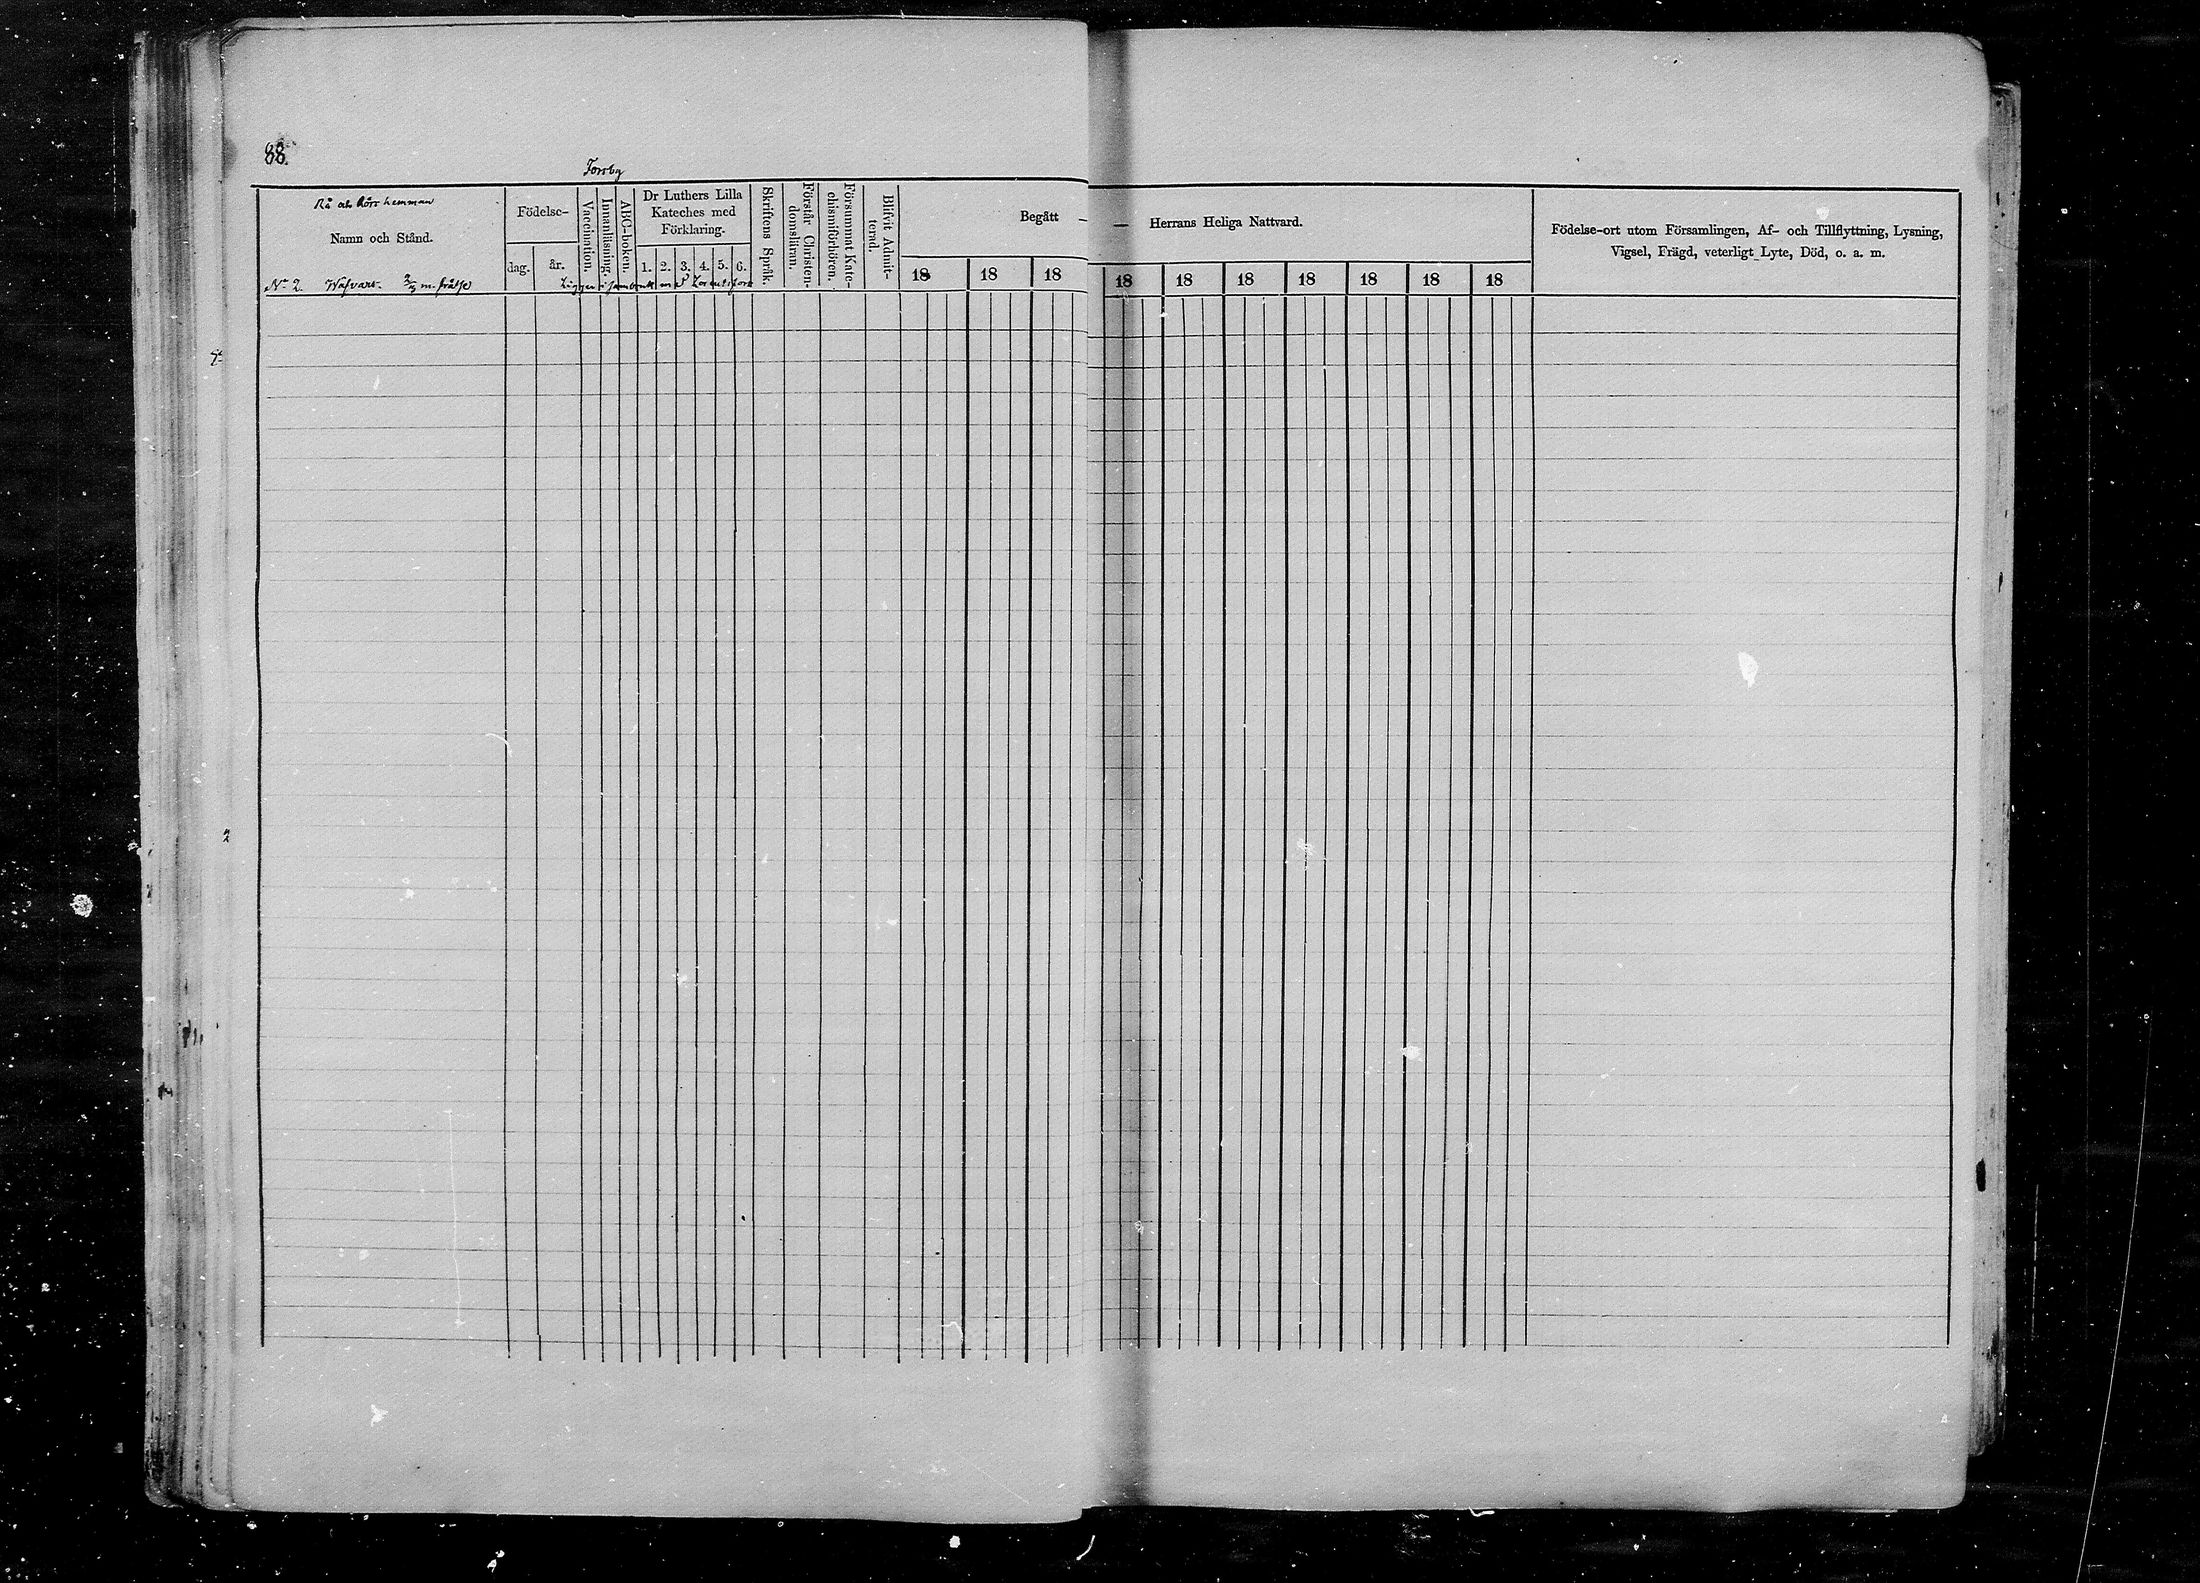 88.
Forsby
Rå och Rörs hemman
Namn och Stånd.
Födelse-
dag.
år.
Vaccination.
Innanläsning.
ABC-boken.
Dr Luthers Lilla
Kateches med
Förklaring.
1. 2. 3. 4. 5. 6.
Skriftens Språk.
Förstår Christen-
domsläran.
Försummat Kate-
chismiförhören.
Blifvit Admit-
terad.
Begått — — Herrans Heliga Nattvard.
18 18 18 18 18 18 18 18 18 18
Födelse-ort utom Församlingen, Af- och Tillflyttning, Lysning,
Vigsel, Frägd, veterligt Lyte, Död, o. a. m.
No 2. Wafvars. m. frälse Ligger i sambruk med